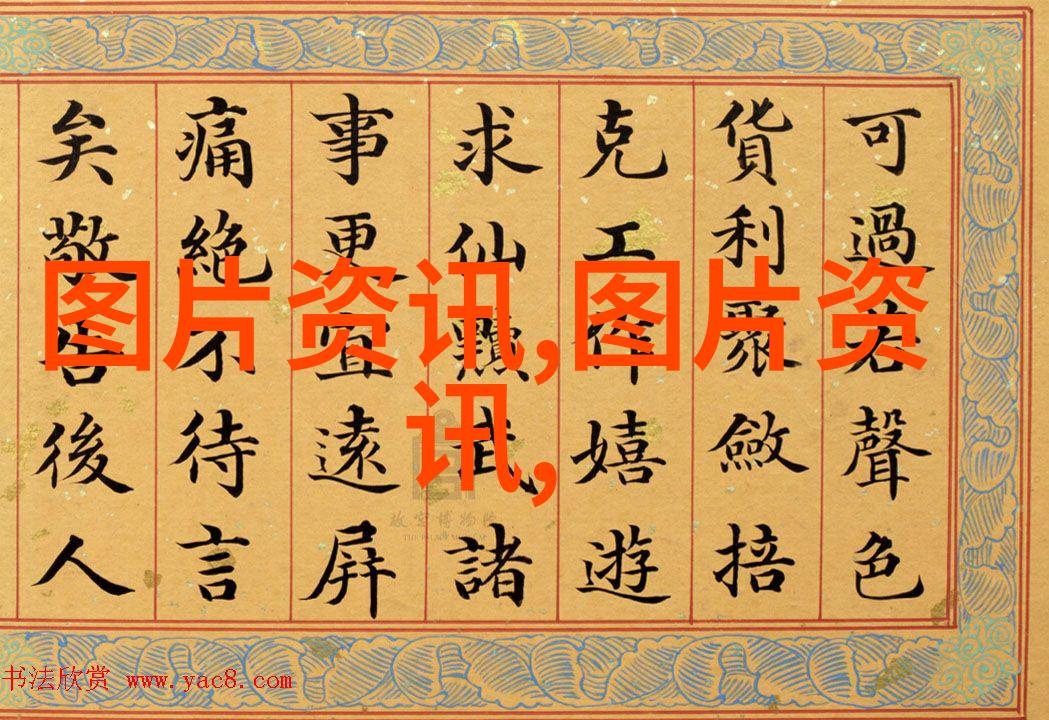 可過若聲色
貨利聚斂掊
克工作嬉遊
求仙黷武諸
事更宜遠屏
痛絶不待言
矣敬告後人
图片资讯,图片资
讯,
故宫博物院
THE PALACE MUSEUM
书法欣赏 www.yac8.com